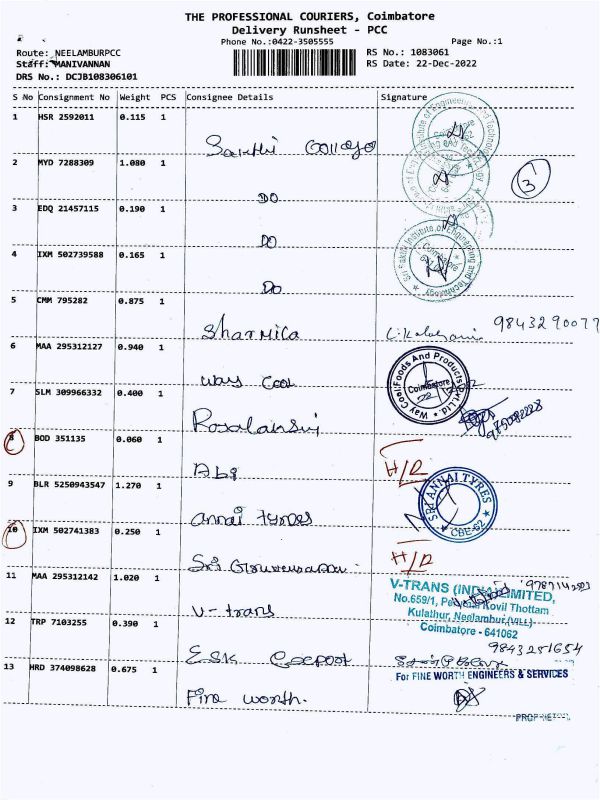 THE PROFESSIONAL COURIERS, Coimbatore
Delivery Runsheet - PCC
Phone No.:0422-3505555 Page No.:1
Route: NEELAMBURPCC RS No.: 1083061
Staff: MANIVANNAN RS Date: 22-Dec-2022
DRS No.: DCJB108306101
S No Consignment No Weight PCS Consignee Details Signature
1 HSR 2592011 0.115 1
Sakthi College
2 MYD 7288309 1.080 1
DO
3
3 EDQ 21457115 0.190 1
DO
4 IXM 502739588 0.165 1
DO
Sri Sakthi Institute of Engineering and Technology
Coimbatore
5 CMM 795282 0.875 1
Sharmila 9843290077
6 MAA 295312127 0.940 1
Way Cool
Way Cool Foods And Products Pvt.Ltd.
Coimbatore
7 SLM 309966332 0.400 1
8 BOD 351135 0.060 1
Abi H/R
9 BLR 5250943547 1.270 1
annai tyres
SRI ANNAI TYRES
CBE-62
10 IXM 502741383 0.250 1
Sri H/R
11 MAA 295312142 1.020 1
V-trans
V-TRANS (INDIA) LIMITED,
No.659/1, Kovil Thottam
Kulathur, Neelambur (VILL)
Coimbatore - 641062
12 TRP 7103255 0.390 1
9843251654
ESK
13 HRD 374098628 0.675 1
Fine worth.
For FINE WORTH ENGINEERS & SERVICES